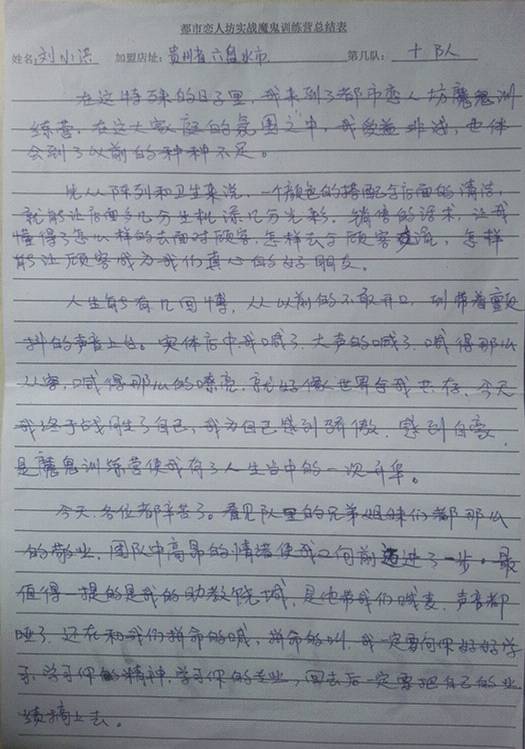 都市恋人坊实战魔鬼训练营总结表
姓名:刘小洪 加盟店址:贵州省六盘水市 第几队:十队
在这特殊的日子里,我来到了都市恋人坊魔鬼训
练营,在这大家庭的氛围之中,我受益非浅,也体
会到了以前的种种不足。
先从陈列和卫生来说,一个颜色的搭配与店面的清洁,
就能让店面多几分生机添几分光彩,销售的话术,让我
懂得了怎么样的去面对顾客,怎样去与顾客交流,怎样
能让顾客成为我们真心的好朋友。
人生能有几回博,从以前的不敢开口,到带着颤
抖的声音上台。实体店中我喊了,大声的喊了,喊得那么
从容,喊得那么的嘹亮,就好像世界与我共存,今天
我终于战胜了自己,我为自己感到骄傲,感到自豪,
是魔鬼训练营使我有了人生当中的一次升华。
今天,各位都辛苦了。看见队里的兄弟姐妹们都那么
的敬业,团队中高昂的情绪使我又向前迈进了一步。最
值得一提的是我的助教晓城,是他带我们喊麦,声音都
哑了,还在和我们拼命的喊,拼命的叫,我一定要向你好好学
习,学习你的精神,学习你的专业,回去后一定要把自己的业
绩搞上去。